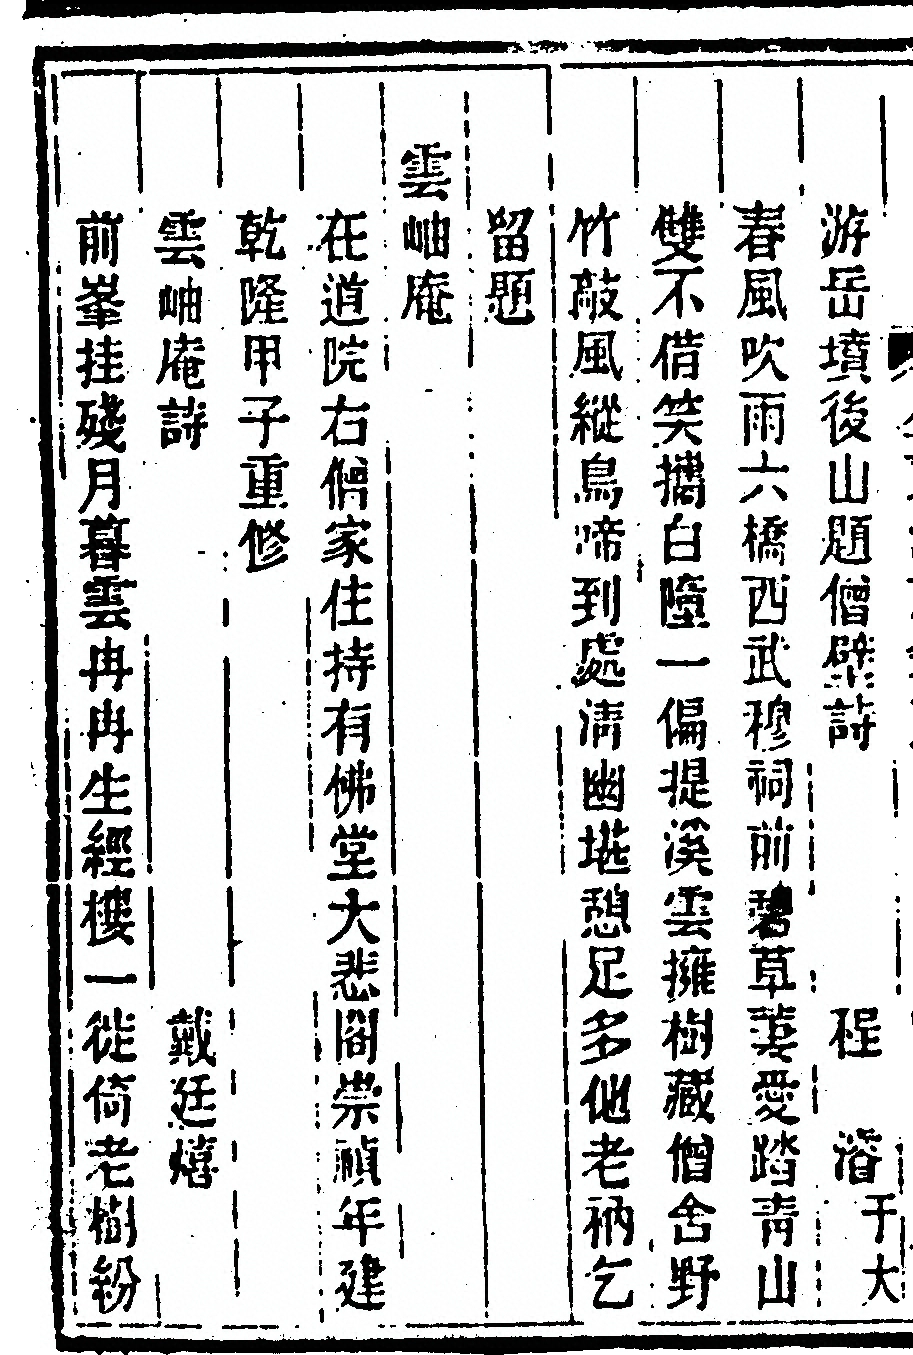 游岳墳後山題僧壁詩 程濬于大
春風吹雨六橋西武穆祠前碧草萋愛踏青山
雙不借笑攜白墮一偏提溪雲擁樹藏僧舍野
竹敲風縱鳥啼到處清幽堪憩足多他老衲乞
留題
雲岫庵
在道院右僧家住持有佛堂大悲閣崇禎年建
乾隆甲子重修
雲岫庵詩 戴廷熺
前峯挂殘月暮雲冉冉生經樓一徙倚老樹紛